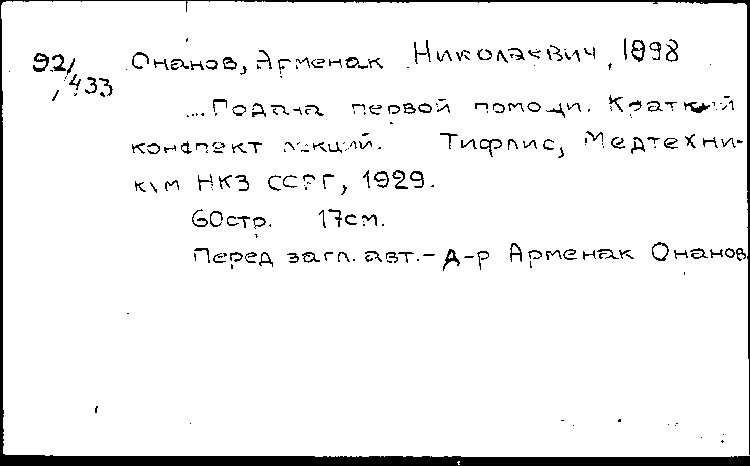 92/433 Онанов, Арменак Николаевич, 1898
... Подача первой помощи. Краткий
конспект лекций. Тифлис, Медтехни-
кум НКЗ ССРГ, 1929.
60 стр. 17 см.
Перед загл. авт. - д-р Арменак Онанов.